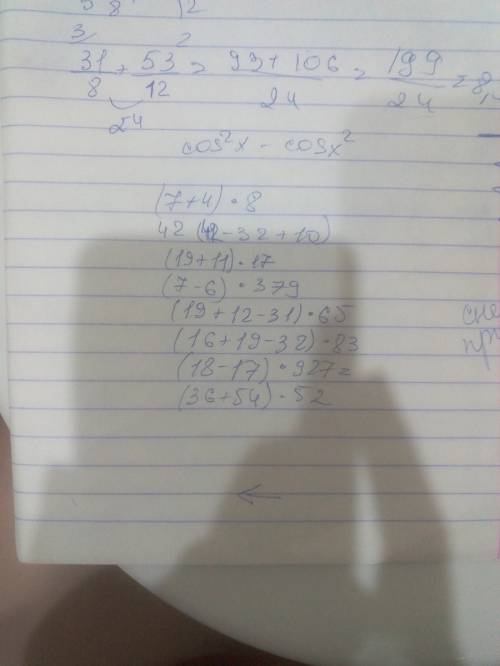 3 2
31/8 + 53/12 = 93+106/24 = 199/24 = 8
24
cos²x - cosx²
(7+4)·8
42 (42-32+10)
(19+11)·17
(7-6)·379
(19+12-31)·65
(16+19-32)·83
(18-17)·927=
(36+54)·52
←